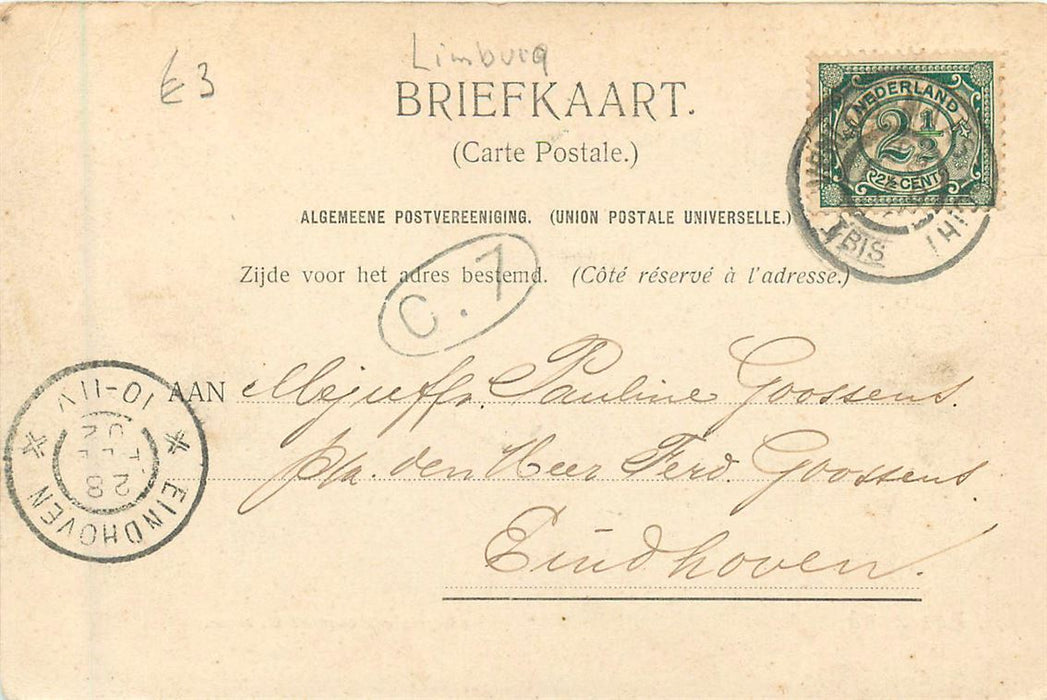 Limburg
£3
BRIEFKAART.
(Carte Postale.)
NEDERLAND
2½
2½ CENT
BIS
ALGEMEENE POSTVEREENIGING. (UNION POSTALE UNIVERSELLE.)
C.7
Zijde voor het adres bestemd. (Côté réservé à l'adresse.)
AAN Mejuffr. Pauline Goossens.
p/a. den Heer Ferd. Goossens
Eindhoven.
EINDHOVEN
28
10-11V